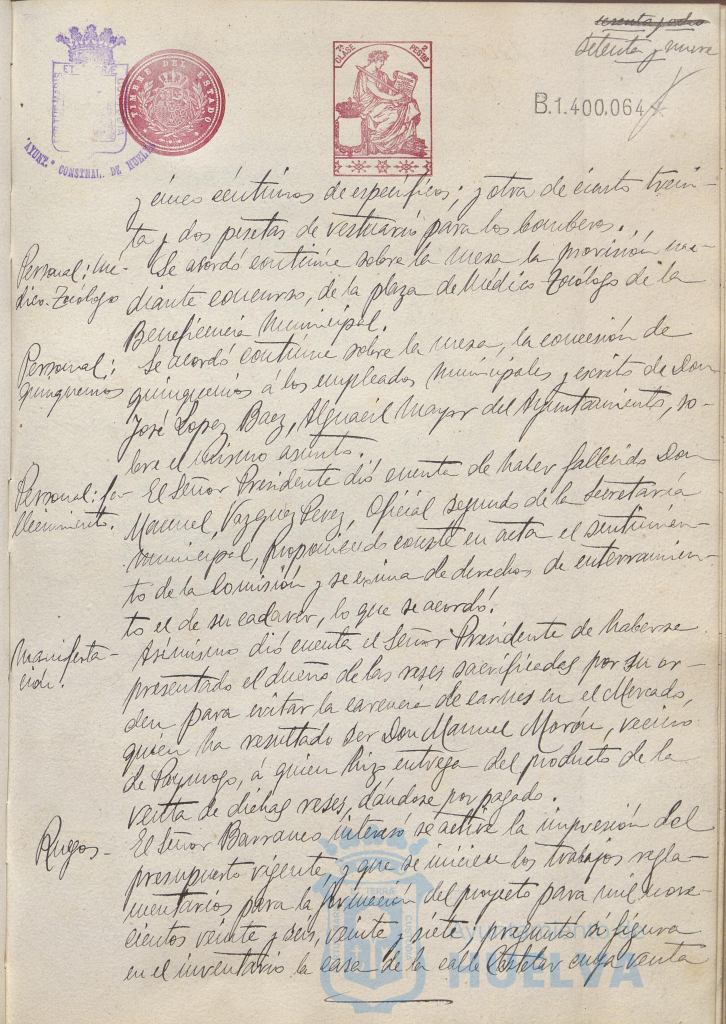 setenta y ocho
setenta y nueve
TIMBRE DEL ESTADO
AYUNT.º CONSTNAL. DE HUELVA
7ª CLASE 2 PESETAS
B.1.400.064
y cinco céntimos de específicos; y otra de ciento trein-
ta y dos pesetas de vestuario para los bomberos.
Personal: Mé-
dico-Tocólogo
Se acordó continúe sobre la mesa la provisión me-
diante concurso, de la plaza de Médico Tocólogo de la
Beneficencia Municipal.
Personal:
quinquenios
Se acordó continúe sobre la mesa, la concesión de
quinquenios á los empleados municipales y escrito de Don
José Lopez Baez, Alguacil Mayor del Ayuntamiento, so-
bre el mismo asunto.
Personal: fa-
llecimiento.
El Señor Presidente dió cuenta de haber fallecido Don
Manuel Vazquez Perez, Oficial segundo de la Secretaría
municipal, proponiendo conste en acta el sentimien-
to de la Comisión y se exima de derechos de enterramien-
to el de su cadaver, lo que se acordó.
Manifesta-
ción.
Asimismo dió cuenta el Señor Presidente de haberse
presentado el dueño de las reses sacrificadas por su or-
den para evitar la carencia de carnes en el Mercado,
quien ha resultado ser Don Manuel Morón, vecino
de Paymogo, á quien hizo entrega del producto de la
venta de dichas reses, dándose por pagado.
Ruegos-
El Señor Barranco interesó se active la impresión del
presupuesto vigente, y que se inicien los trabajos regla-
mentarios para la formación del proyecto para mil nove-
cientos veinte y seis, veinte y siete; preguntó si figura
en el inventario la casa de la calle Castelar cuya venta
Ayuntamiento de
HUELVA